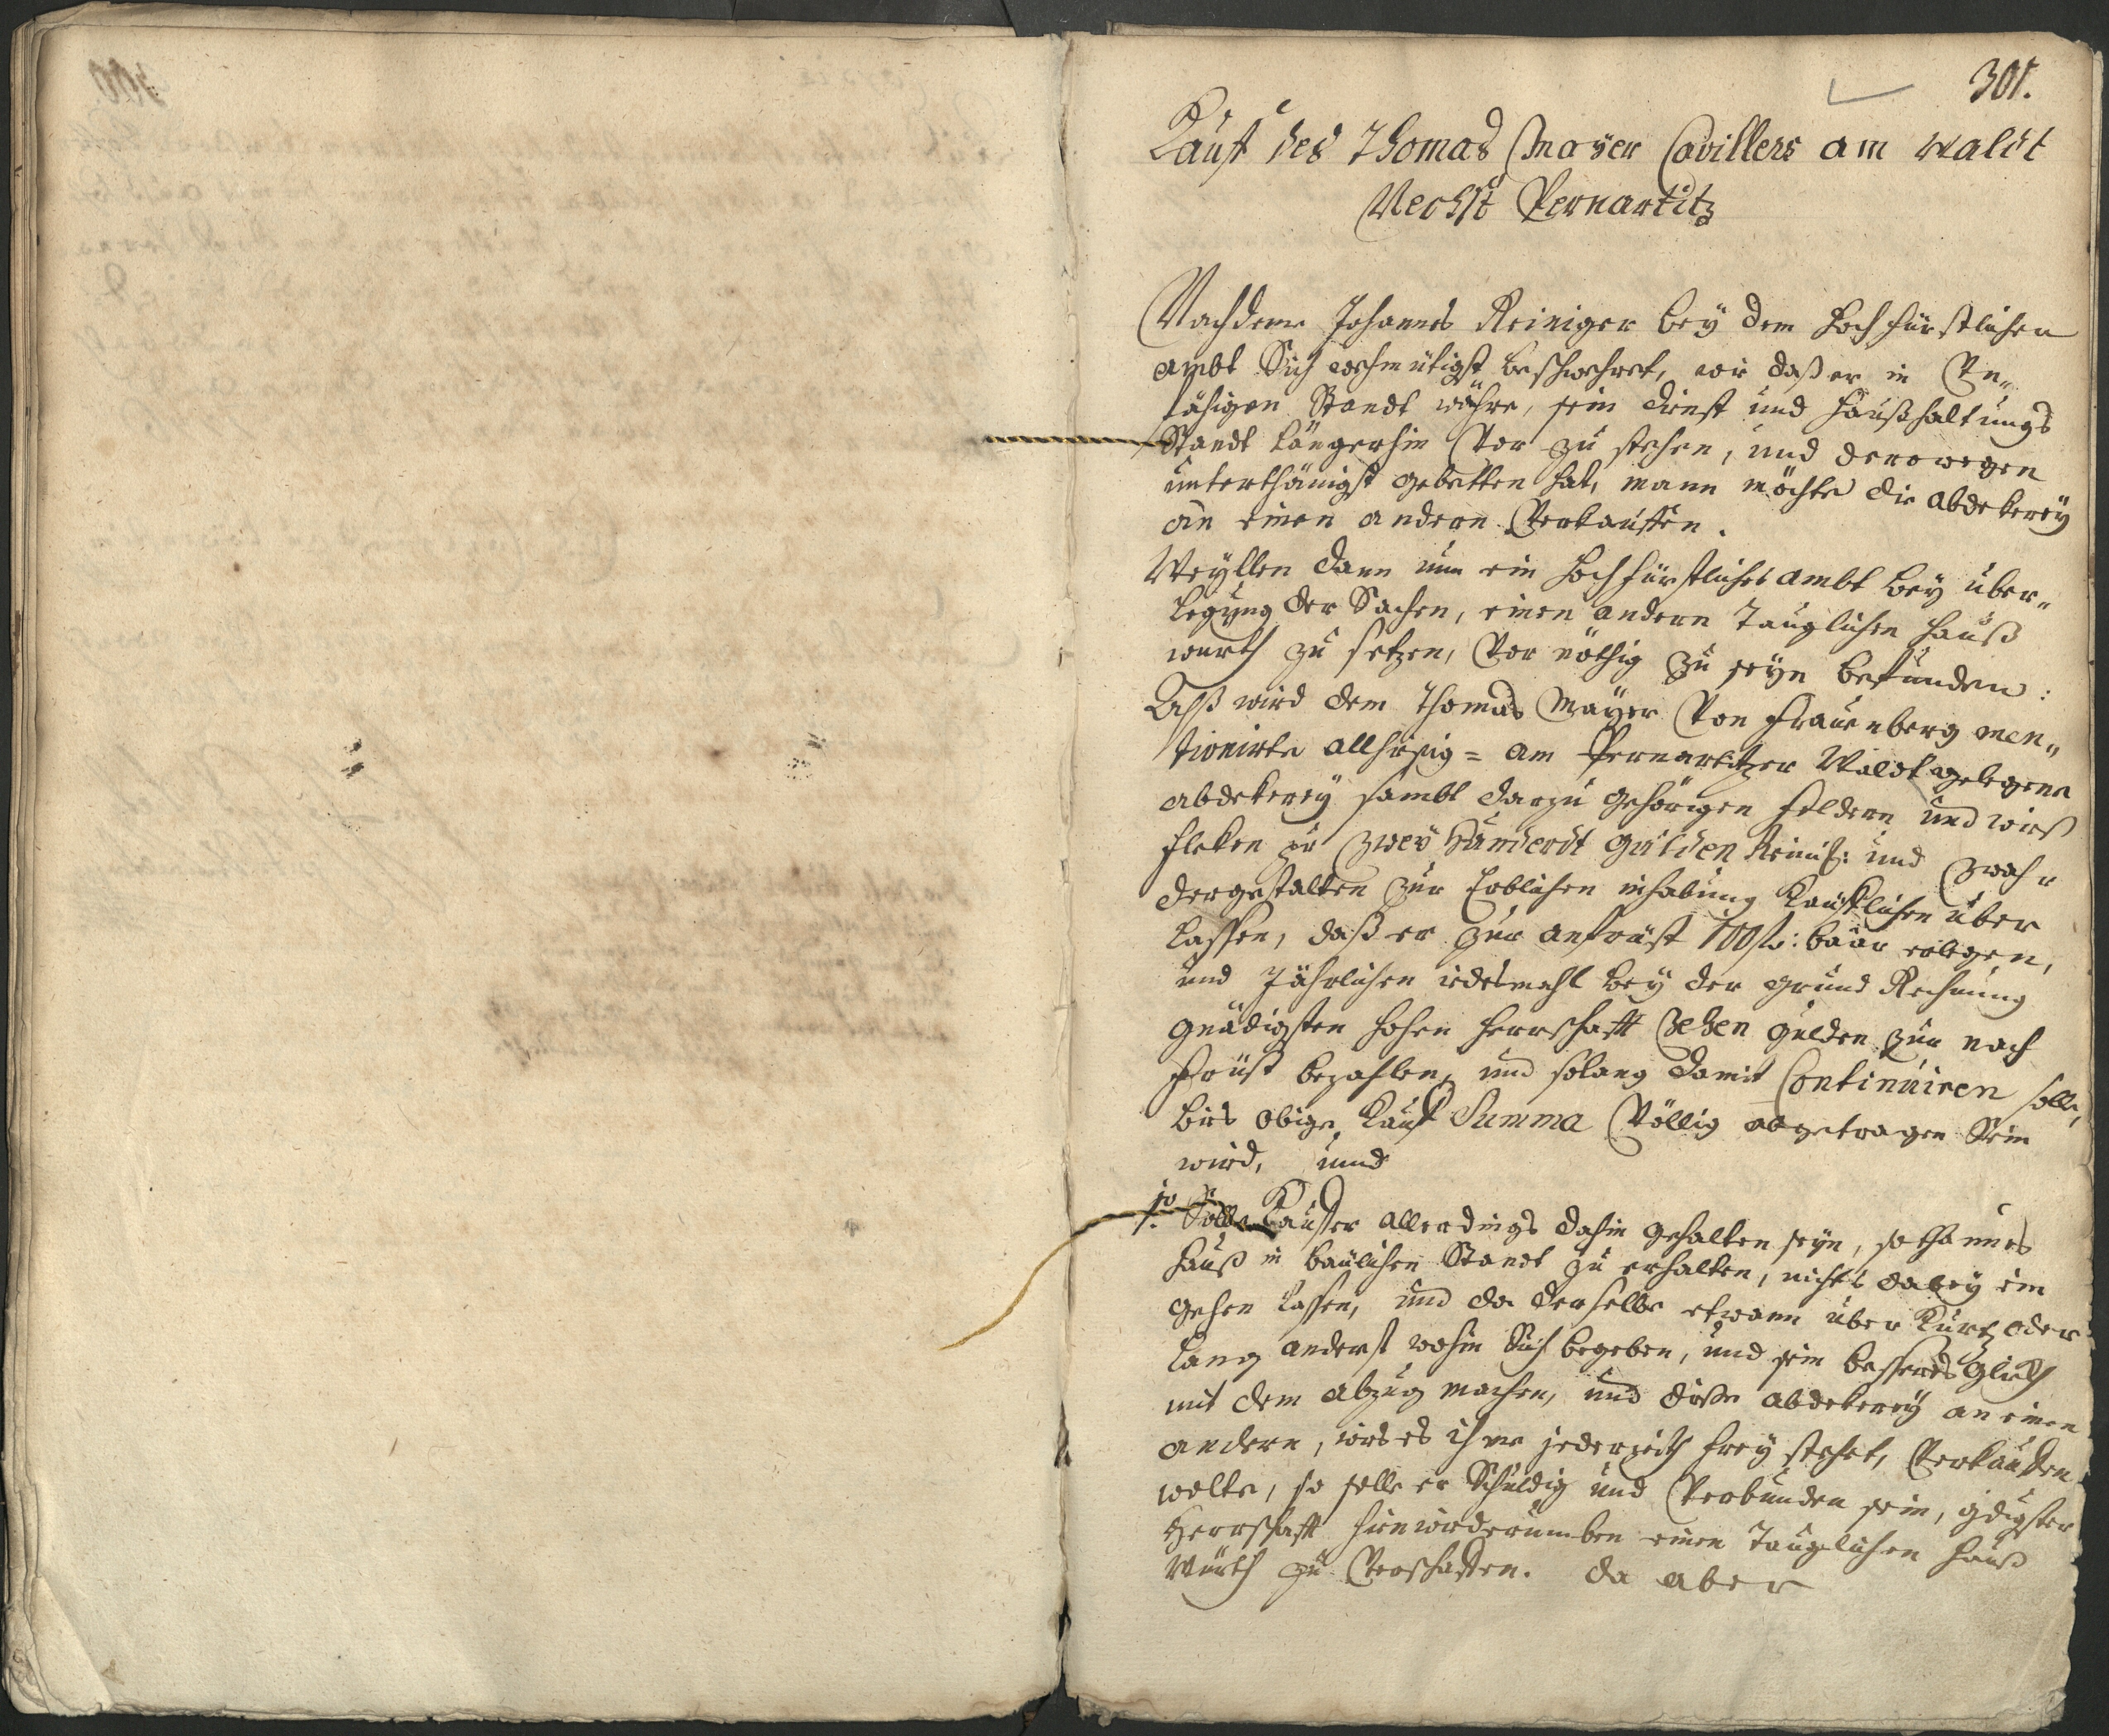 301.
Kauf des Thomas Mayer Cavillers am waldt
Nechst Pernartitz
Nachdeme Johannes Reiniger bey dem Hochfürstlichen
ambt Sich wehmütigst beschwehret, wie daß er in Un„
fähigen Standt währe, sein dienst und Haußhaltungs
Standt längerhin Vor zu stehen, und derowegen
unterthänigst gebetten hat, mann möchte die abdekerey
an einen andern Verkauffen.
Weyllen dann nun ein Hochfürstliches ambt bey über„
legung der Sachen, einen andern Tauglichen Hauß
wurth zu setzen, Vor nöthig zu seyn befunden:
Alß wird dem Thomas Mayer Von Frauenberg men„
tionirte allhiesig = am Pernartitzer Waldt gelegene
abdekerey sambt darzu gehörigen feldern und wieß
fleken zu Zwey Hunderdt gulden Reinis: und Zwahr
dergestalten zur Erblichen inhabung Kauflichen über
lassen, daß er zur anfrist 100 fl: baar erlegen,
und Jährlichen iedesmahl bey der grund Rechnung
gnädigsten hohen Herrschafft Zehen gulden zur nach
Früst bezahlen, und solang damit Continuiren solle,
bies obige Kauf Summa Völlig abgetragen Sein
wird, und
1mo Solle Kauffer allerdings dahin gehalten seyn, sothannes
Hauß in baulichen Standt zu erhalten, nichts dabey ein
gehen lassen, und da derselbe etwann über Kurtz oder
lang anderst wohin Sich begeben, und sein besseres Glickh
mit dem abzug machen, und diese abdekerey an einen
andern, wie es ihme jederzeith frey stehet, Verkauffen
wolte, so solle er Schuldig und Verbunden sein, gdigster
Herrschafft hinwiederumben einen Tauglichen Hauß
Würth zu Verschaffen. da aber